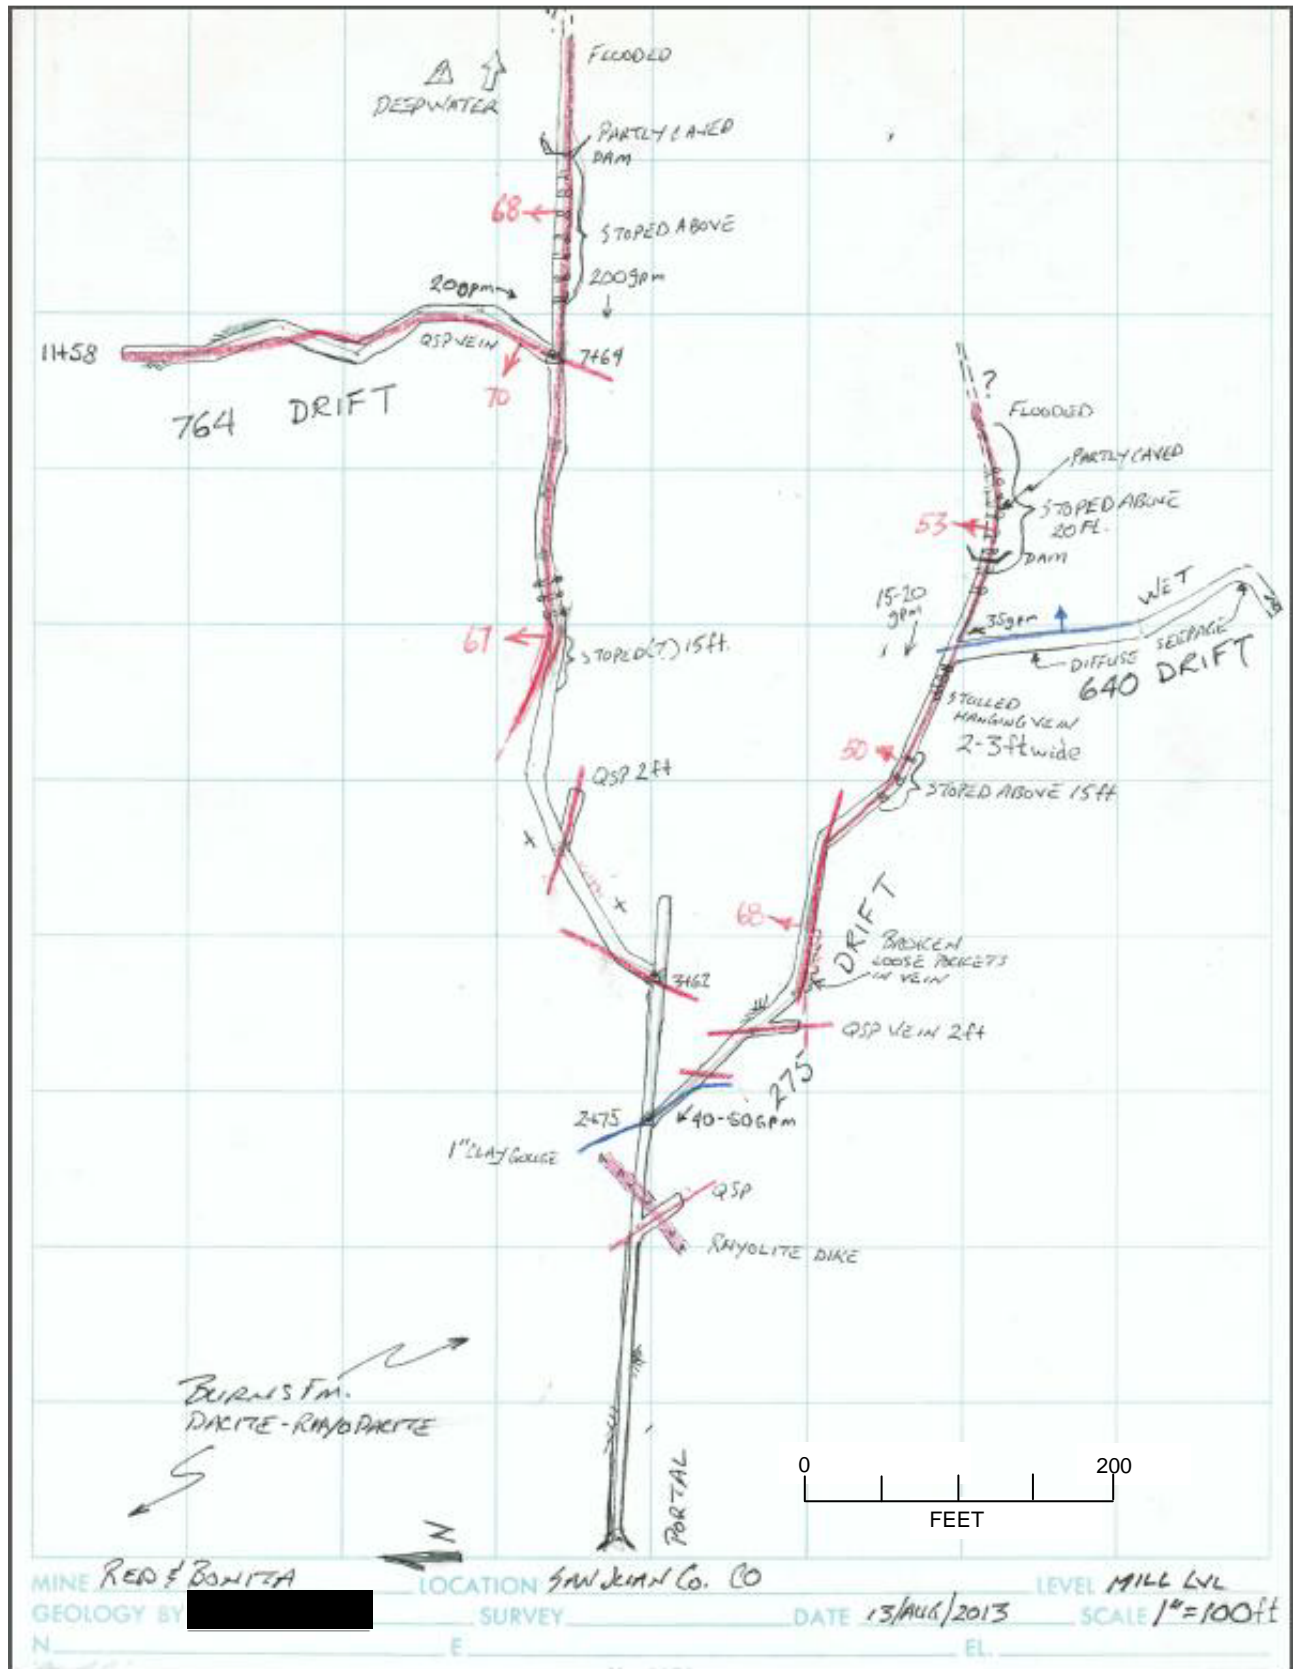 FLOODED
DEEPWATER
PARTLY CAVED
DAM
68
STOPED ABOVE
200gpm
200gpm
11+58
QSP VEIN
7+64
70
764 DRIFT
?
FLOODED
PARTLY CAVED
STOPED ABOVE
20 FT.
53
DAM
WET
15-20
gpm
35gpm
DIFFUSE SEEPAGE
640 DRIFT
67
STOPED(?) 15ft.
STULLED
HANGING VEIN
2-3ft wide
50
STOPED ABOVE 15ft
QSP 2ft
68
DRIFT
BROKEN
LOOSE POCKETS
IN VEIN
3+62
QSP VEIN 2ft
275
2+75
40-50gpm
1" CLAY GOUGE
QSP
RHYOLITE DIKE
BURNS FM.
DACITE-RHYODACITE
PORTAL
0 200
FEET
N
MINE RED & BONITA LOCATION SAN JUAN CO. CO LEVEL MILL LVL
GEOLOGY BY SURVEY DATE 13/AUG/2013 SCALE 1"=100ft
N E EL.